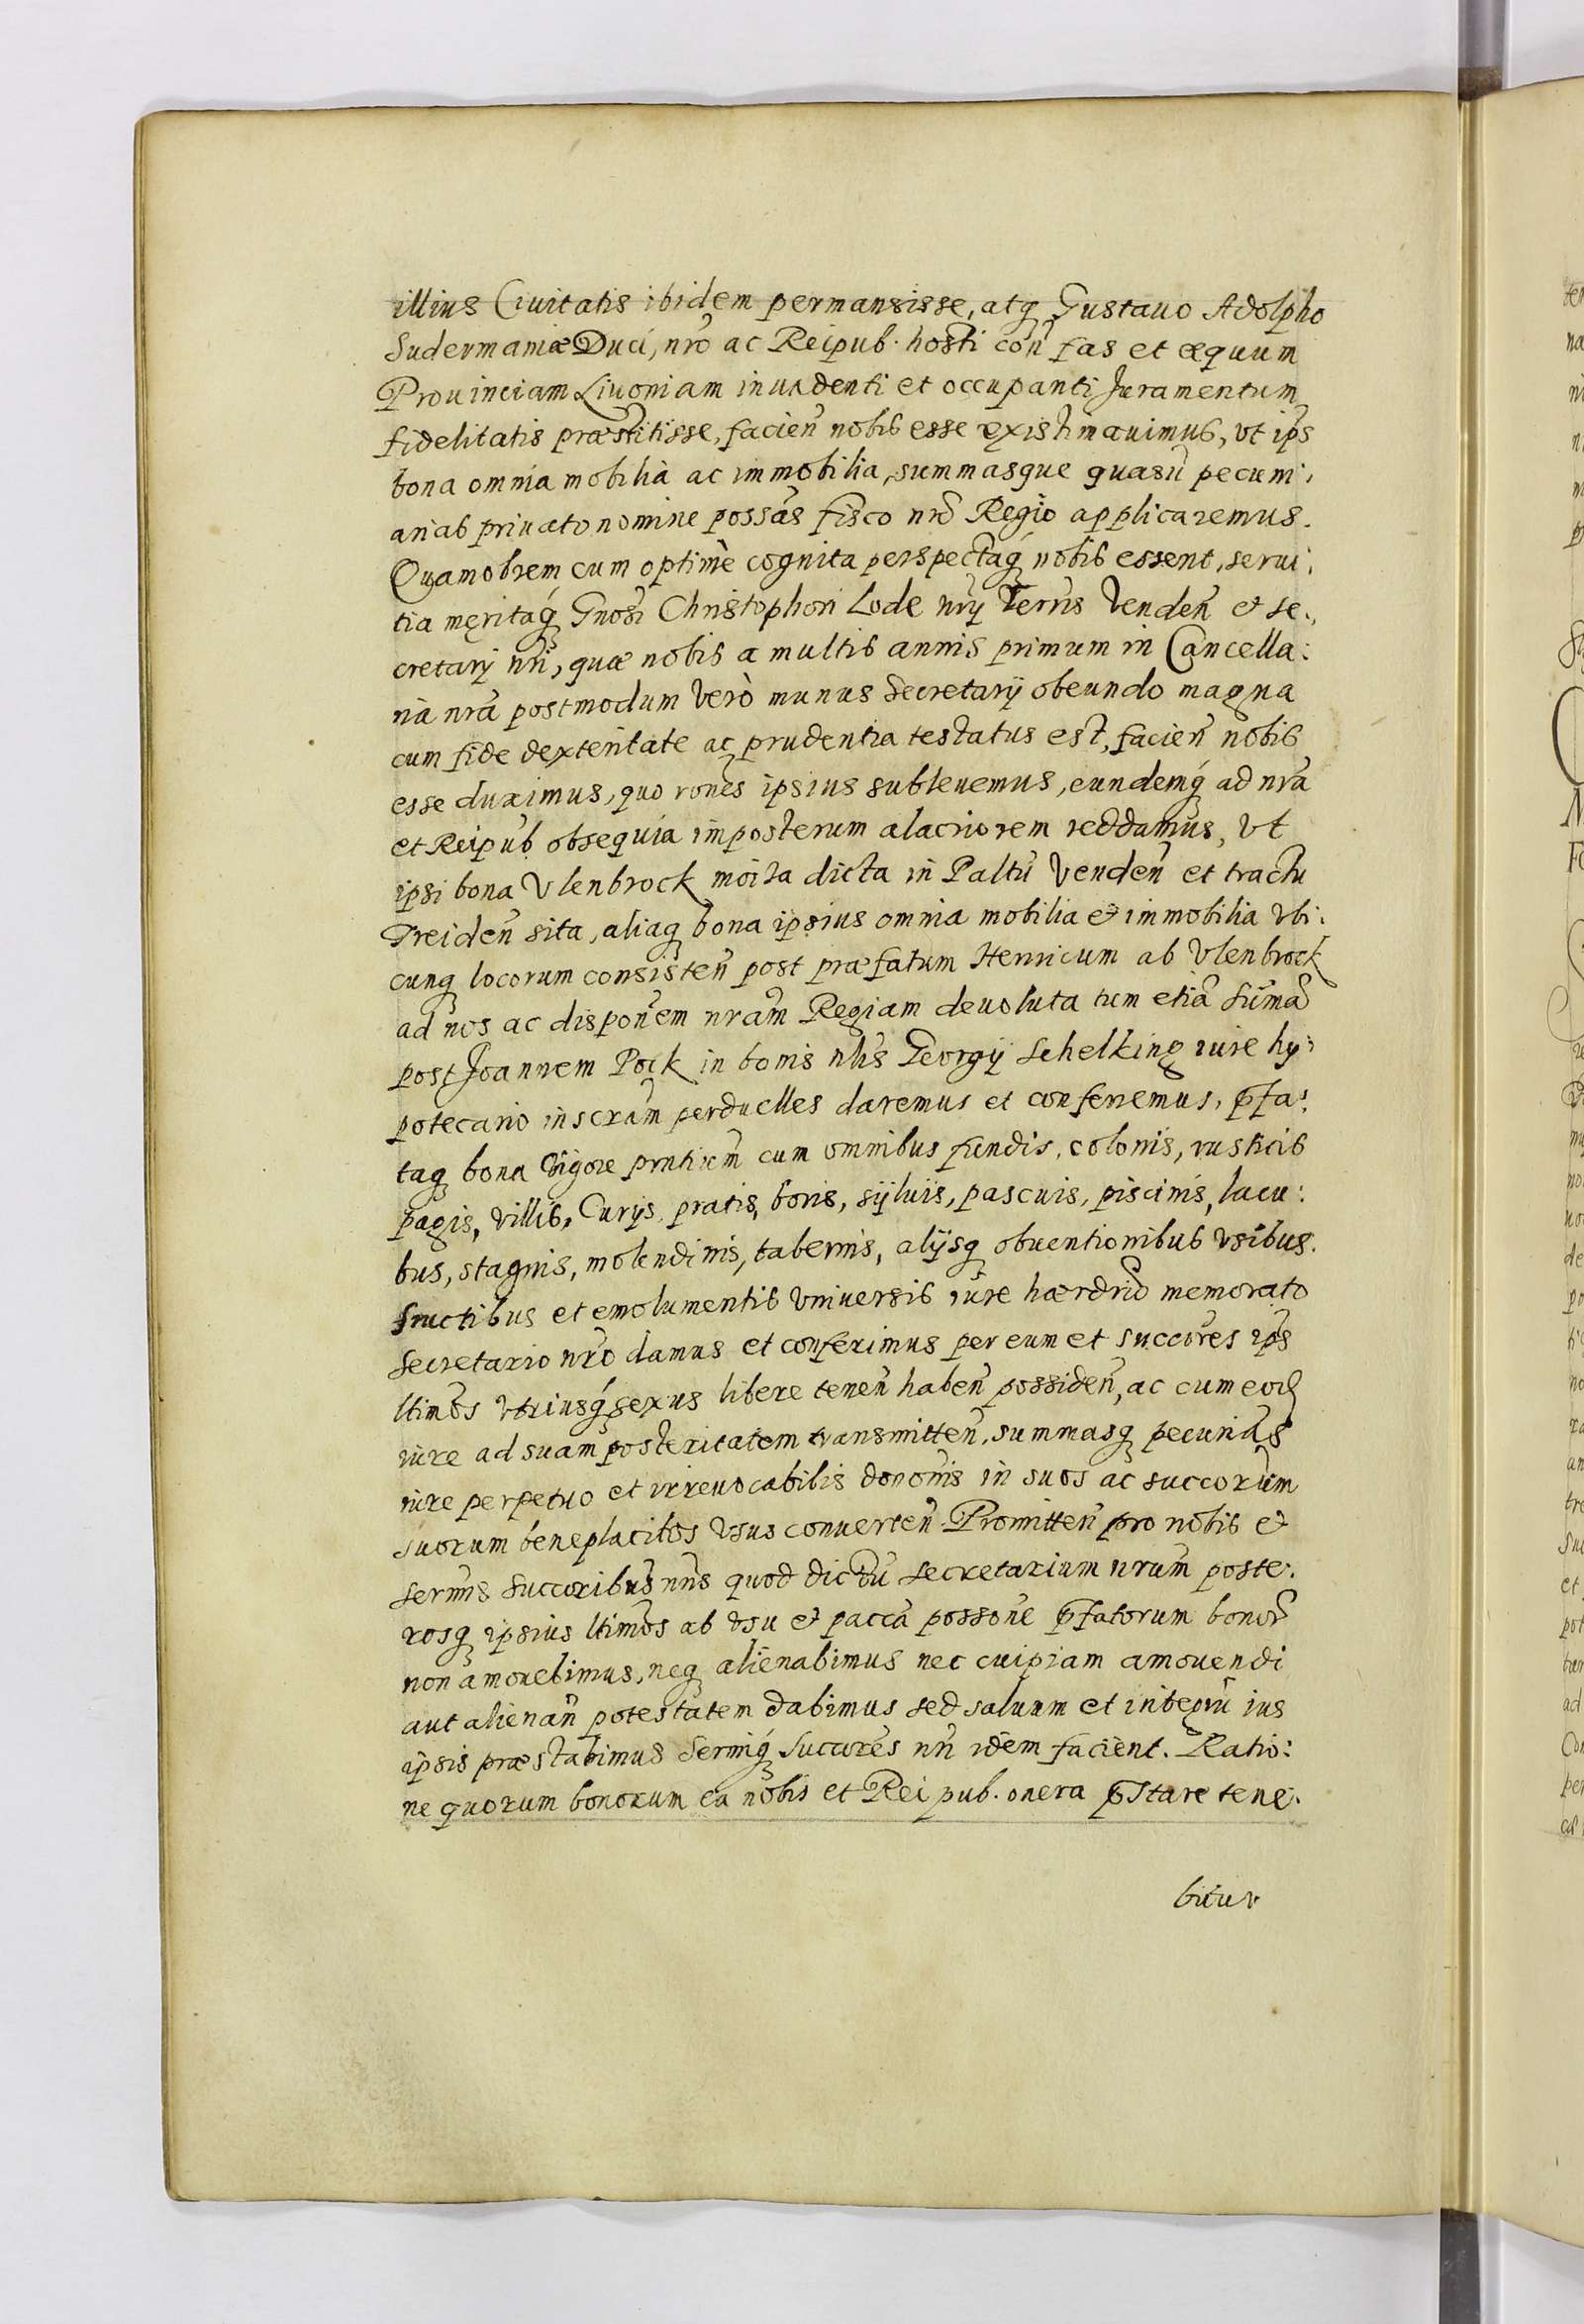 illius Ciuitatis ibidem permansisse, atq Gustauo Adolpho
Sudermaniæ Duci, nrõ ac Reipub. hosti con̄ fas et æquum
Prouinciam Liuoniam inuadenti et occupanti Juramentum
fidelitatis præstitisse, facien̄ nobis esse existimauimus, vt ip̄s
bona omnia mobilia ac immobilia, summasque quasũ pecuni:
arias priuato nomine possãs fisco nrõ Regio applicaremus.
Quamobrem cum optimè cognita perspectaq́ nobis essent, serui:
tia meritaq́ Gnosi Christophori Lode nrj Terris Venden̄ et Se:
cretarij nri, quæ nobis a multis annis primum in Cancella:
ria nrã postmodum verò munus Secretarij obeundo magna
cum fide dexteritate ac prudentia testatus est, facien̄ nobis
esse duximus, quo rones ipsius subleuemus, eundemq́ ad nrã
et Reipub obsequia imposterum alacriorem reddamus, vt
ipsi bona Vlenbrock moiza dicta in Paltũ Venden̄ et tractu
Treiden̄ sita, aliaq bona ipsius omnia mobilia et immobilia vbi:
cunq locorum consisten̄ post præfatum Henricum ab Vlenbrock
ad nos ac dispon̄em nrãm Regiam deuoluta tum etiã sum̃ã
post Joannem Pock in bonis nlis Georgij Schelking iure hy:
potecario inscrãm perduelles daremus et conferremus, p̄fa:
taq bona vigore pntium̄ cum omnibus fundis, colonis, rusticis
pagis, villis, Curijs, pratis, boris, sijluis, pascuis, piscinis, lacu:
bus, stagnis, molendinis, tabernis, alijsq obuentionibus vsibus.
fructibus et emolumentis vniuersis iure hærdrio memorato
Secretario nrõ damus et conferimus per eum et succores ip̄s
ltimos vtriusq́ sexus libere tenen̄ haben̄ possiden̄, ac cum eod
iure ad suam posteritatem transmitten̄, summasq pecuniãs
iure perpetuo et irreuocabilis donon̄is in suos ac succorũm
suorum beneplacitos vsus conuerten̄. Promitten̄ pro nobis et
Serm̄is Succoribus nris quod dictũ Secretarium nrũm poste:
rosq ipsius ltimos ab vsu et paccã posson̄e p̄fatorum bonor
non amouebimus, neq alienabimus nec cuipiam amouendi
aut alienan̄ potestatem dabimus sed saluum et integrũ ius
ipsis præstabimus Sermiq́ Succores nri idem facient. Ratio:
ne quorum bonorum ea nobis et Rei pub. onera p̄stare tene:
bitur